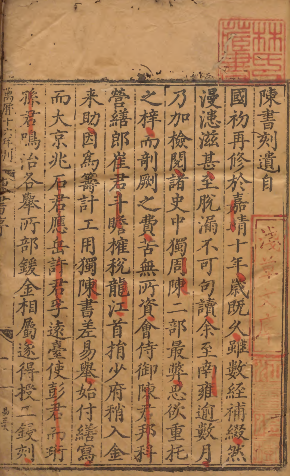 林氏
藏書
陳書刻遺目
國初再修於嘉靖十年歲既久雖數經補綴然
漫漶滋甚至脫漏不可句讀余至南雍逾數月
乃加檢閱諸史中獨周陳二部最弊思欲重托
之梓而剞劂之費古無所資會侍御陳君邦科
營繕郎崔君斗瞻榷稅龍江首捐少府稍入金
来助因為籌計工用獨陳書差易舉始付繕寫
而大京兆石君應岳許君孚遠臺使彭君而珩
孫君鳴治各舉所部鍰金相屬遂得授工鋟刻
萬曆十六年刊
淺草文庫